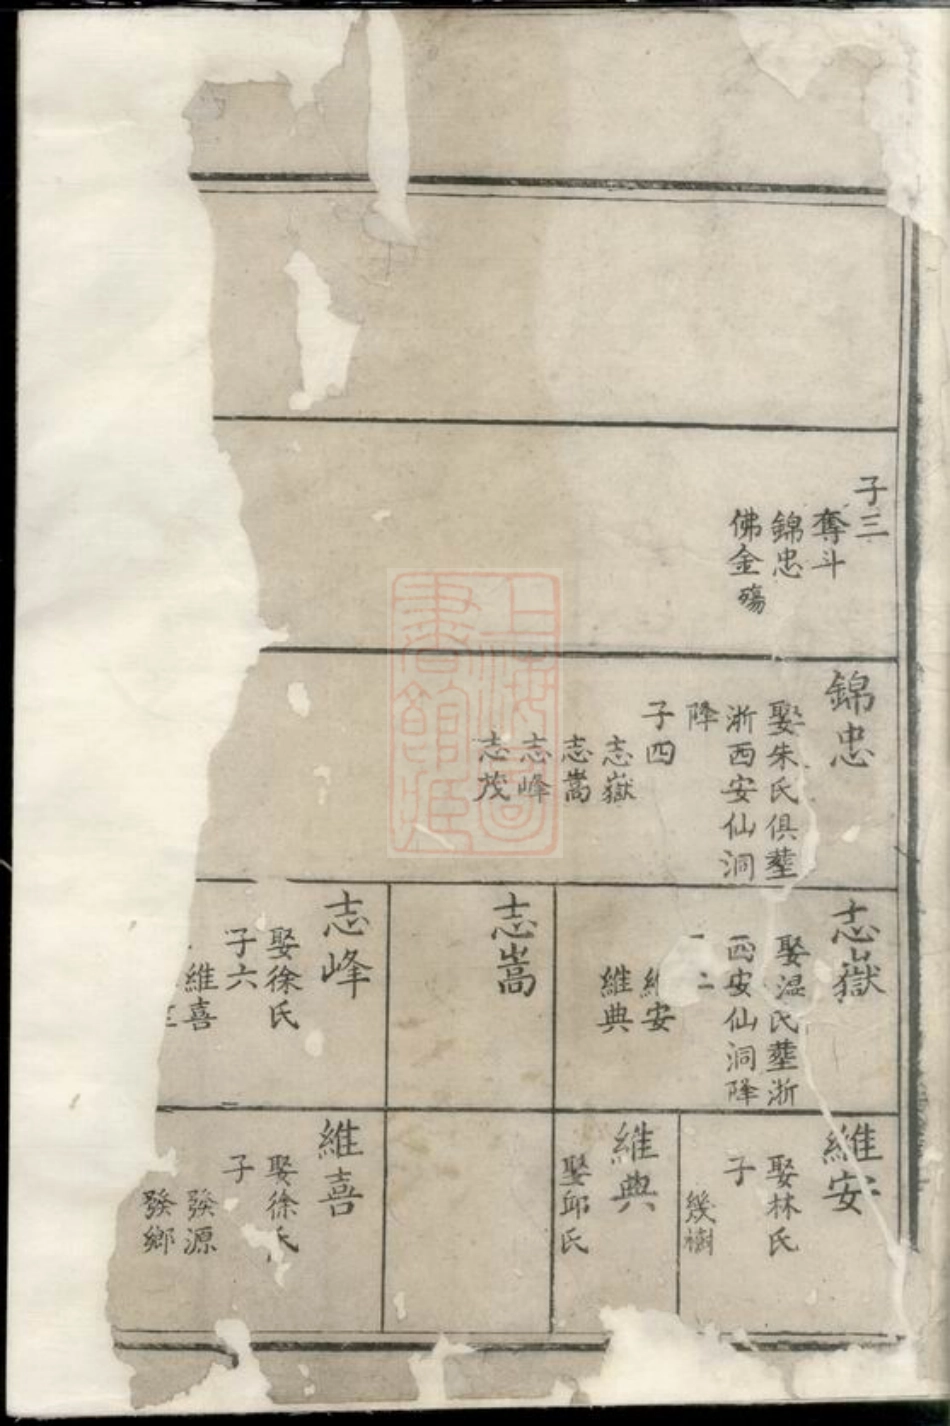 子三
奪斗
錦忠
佛金殤
錦忠
娶朱氏俱塟
浙西安仙洞
降
子四
志嶽
志嵩
志峰
志茂
志嶽
娶温氏塟浙
西安仙洞降
二
維安
維典
志嵩
志峰
娶徐氏
子六
維喜
維安
娶林氏
子
幾樹
維典
娶邱氏
維喜
娶徐氏
子
發源
發鄉